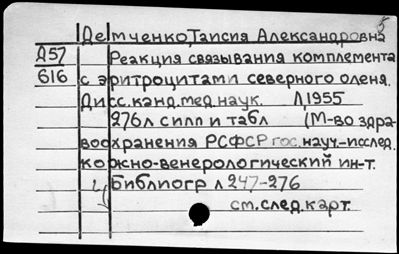 Демченко, Таисия Александровна
Д57 Реакция связывания комплемента
616 с эритроцитами северного оленя.
Дисс. канд. мед. наук. Л, 1955
276л с илл и табл (М-во здра-
воохранения РСФСР гос. науч.-исслед.
кожно-венерологический ин-т.
Библиогр л 247-276
см. след. карт.